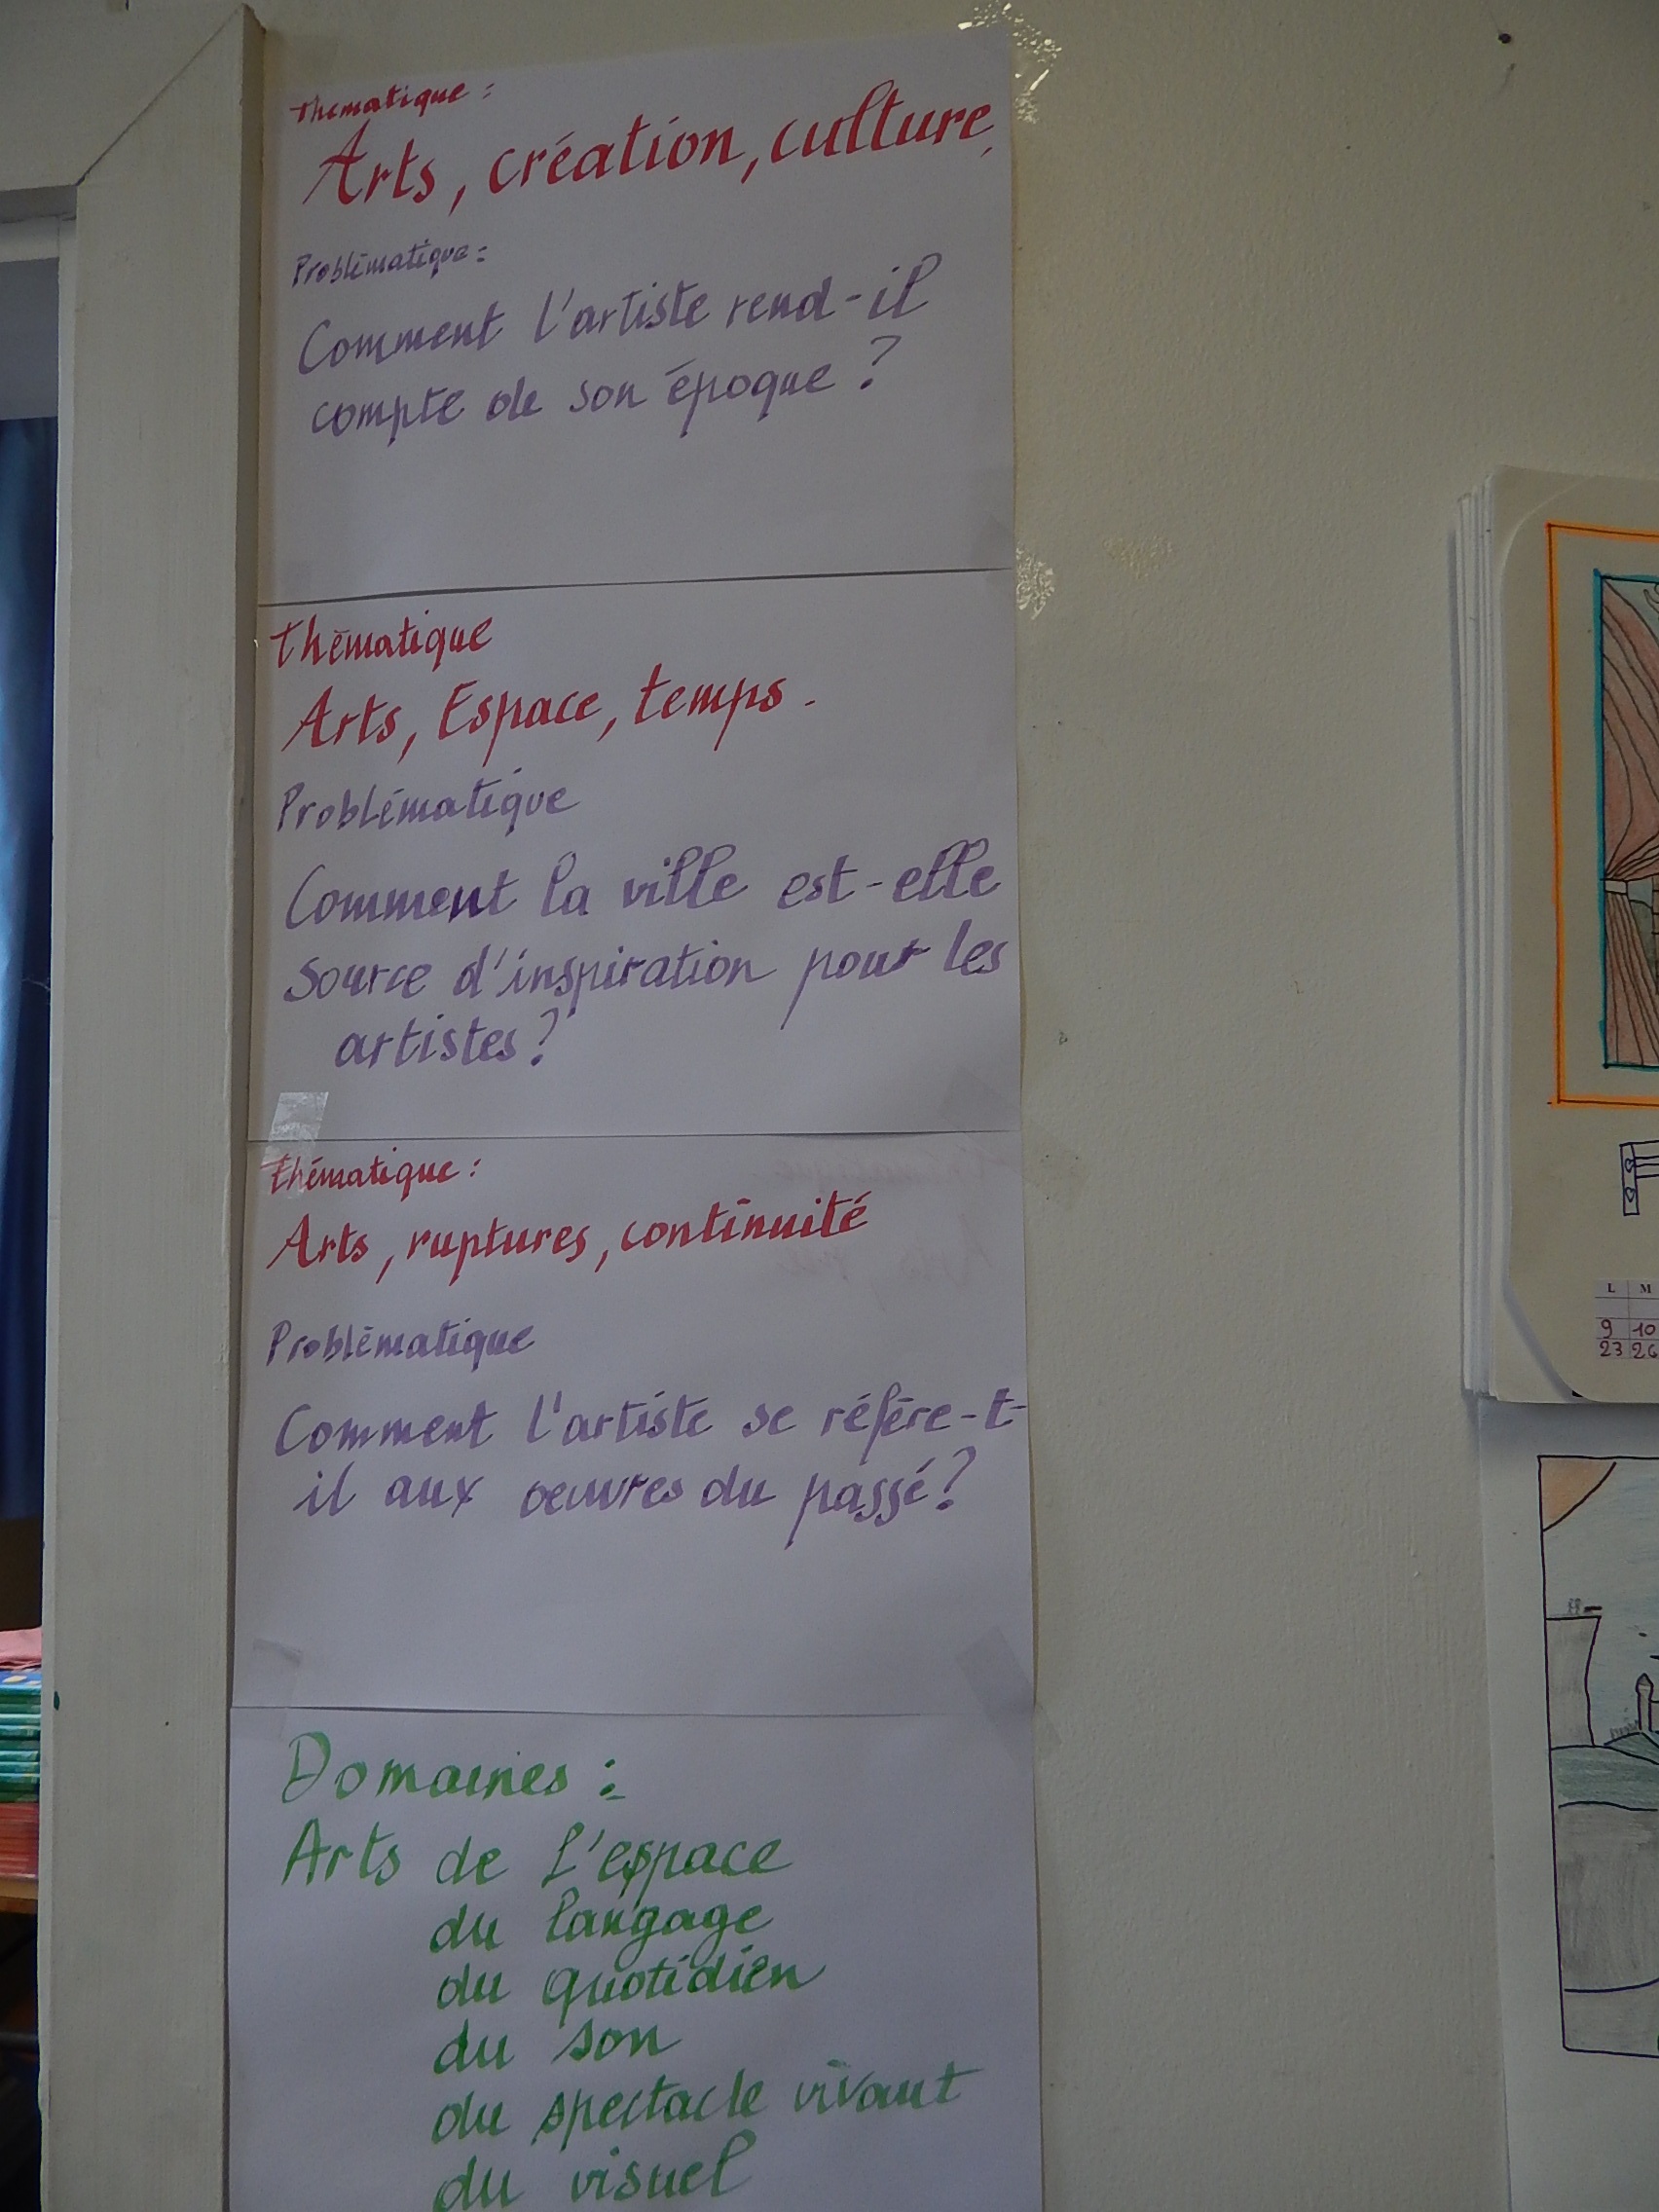 Thématique :
Arts, création, culture,
Problématique :
Comment l'artiste rend-il
compte de son époque ?
Thématique
Arts, Espace, temps.
Problématique
Comment la ville est-elle
source d'inspiration pour les
artistes ?
thématique :
Arts, ruptures, continuité
Problématique
Comment l'artiste se réfère-t-
il aux oeuvres du passé ?
Domaines :
Arts de l'espace
du langage
du quotidien
du son
du spectacle vivant
du visuel
L M
9 10
23 26